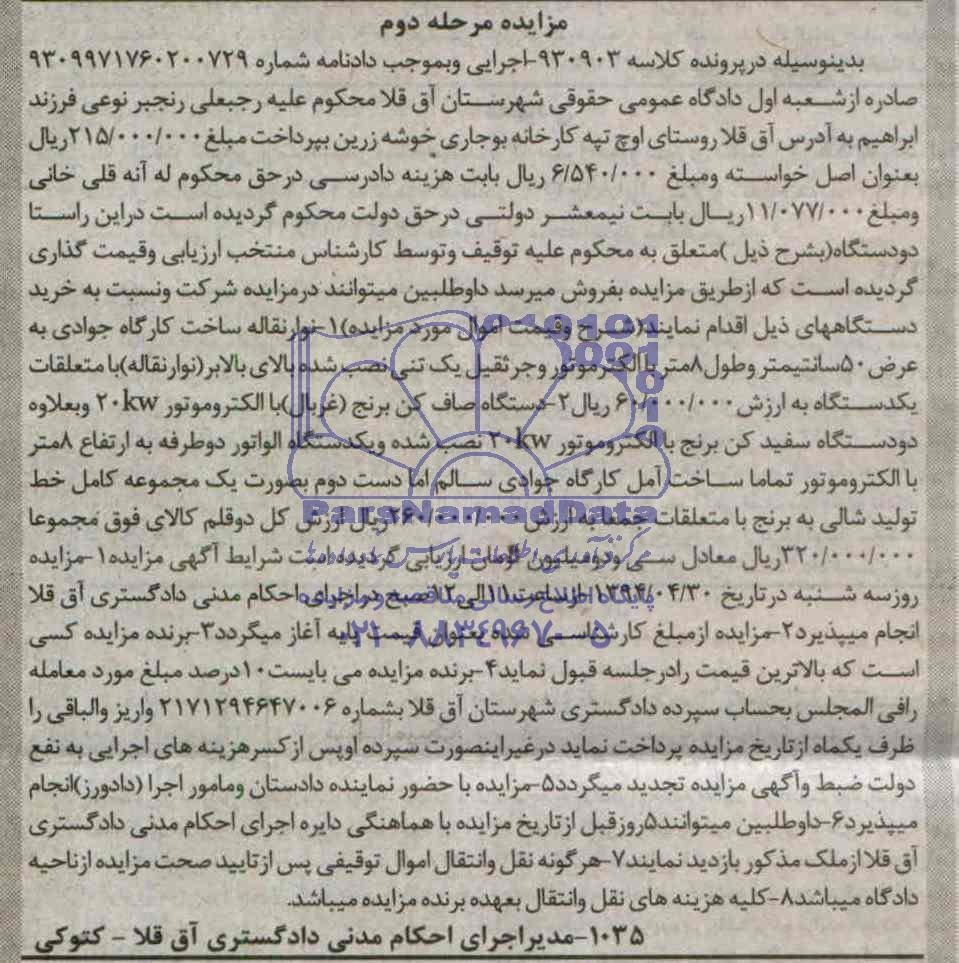 مزایده مرحله دوم
بدینوسیله درپرونده کلاسه ۹۳۰۹۰۳-اجرایی وبموجب دادنامه شماره ۹۳۰۹۹۷۱۷۶۰۲۰۰۷۲۹
صادره ازشعبه اول دادگاه عمومی حقوقی شهرستان آق قلا محکوم علیه رجبعلی رنجبر نوعی فرزند
ابراهیم به آدرس آق قلا روستای اوچ تپه کارخانه بوجاری خوشه زرین بپرداخت مبلغ ۲۱۵/۰۰۰/۰۰۰ریال
بعنوان اصل خواسته ومبلغ ۶/۵۴۰/۰۰۰ ریال بابت هزینه دادرسی درحق محکوم له آنه قلی خانی
ومبلغ ۱۱/۰۷۷/۰۰۰ریال بابت نیمعشر دولتی درحق دولت محکوم گردیده است دراین راستا
دودستگاه(بشرح ذیل )متعلق به محکوم علیه توقیف وتوسط کارشناس منتخب ارزیابی وقیمت گذاری
گردیده است که ازطریق مزایده بفروش میرسد داوطلبین میتوانند درمزایده شرکت ونسبت به خرید
دستگاههای ذیل اقدام نمایند(شرح وقیمت اموال مورد مزایده)۱-نوارنقاله ساخت کارگاه جوادی به
عرض ۵۰سانتیمتر وطول ۸متر باالکترموتور وجرثقیل یک تنی نصب شده بالای بالابر(نوارنقاله)با متعلقات
یکدستگاه به ارزش ۶۰/۰۰۰/۰۰۰ ریال۲-دستگاه صاف کن برنج (غربال)با الکتروموتور ۲۰kw وبعلاوه
دودستگاه سفید کن برنج با الکتروموتور ۲۰kw نصب شده ویکدستگاه الواتور دوطرفه به ارتفاع ۸متر
با الکتروموتور تماما ساخت آمل کارگاه جوادی سالم اما دست دوم بصورت یک مجموعه کامل خط
تولید شالی به برنج با متعلقات جمعا به ارزش ۲۶۰/۰۰۰/۰۰۰ریال ارزش کل دوقلم کالای فوق مجموعا
۳۲۰/۰۰۰/۰۰۰ریال معادل سی ودومیلیون تومان ارزیابی گردیده است شرایط آگهی مزایده۱-مزایده
روزسه شنبه درتاریخ ۱۳۹۴/۰۴/۳۰ازساعت ۱۱الی۱۲صبح دراجرای احکام مدنی دادگستری آق قلا
انجام میپذیرد۲-مزایده ازمبلغ کارشناسی شده بعنوان قیمت پایه آغاز میگردد۳-برنده مزایده کسی
است که بالاترین قیمت رادرجلسه قبول نماید۴-برنده مزایده می بایست۱۰درصد مبلغ مورد معامله
رافی المجلس بحساب سپرده دادگستری شهرستان آق قلا بشماره ۲۱۷۱۲۹۴۶۴۷۰۰۶ واریز والباقی را
ظرف یکماه ازتاریخ مزایده پرداخت نماید درغیراینصورت سپرده اوپس ازکسرهزینه های اجرایی به نفع
دولت ضبط وآگهی مزایده تجدید میگردد۵-مزایده با حضور نماینده دادستان ومامور اجرا (دادورز)انجام
میپذیرد۶-داوطلبین میتوانند۵روزقبل ازتاریخ مزایده با هماهنگی دایره اجرای احکام مدنی دادگستری
آق قلا ازملک مذکور بازدید نمایند۷-هرگونه نقل وانتقال اموال توقیفی پس ازتایید صحت مزایده ازناحیه
دادگاه میباشد۸-کلیه هزینه های نقل وانتقال بعهده برنده مزایده میباشد.
۱۰۳۵-مدیراجرای احکام مدنی دادگستری آق قلا - کتوکی
ParsNamadData
پایگاه اطلاع رسانی مناقصه و مزایده
۰۲۱-۸۸۳۴۹۶۷۰-۵